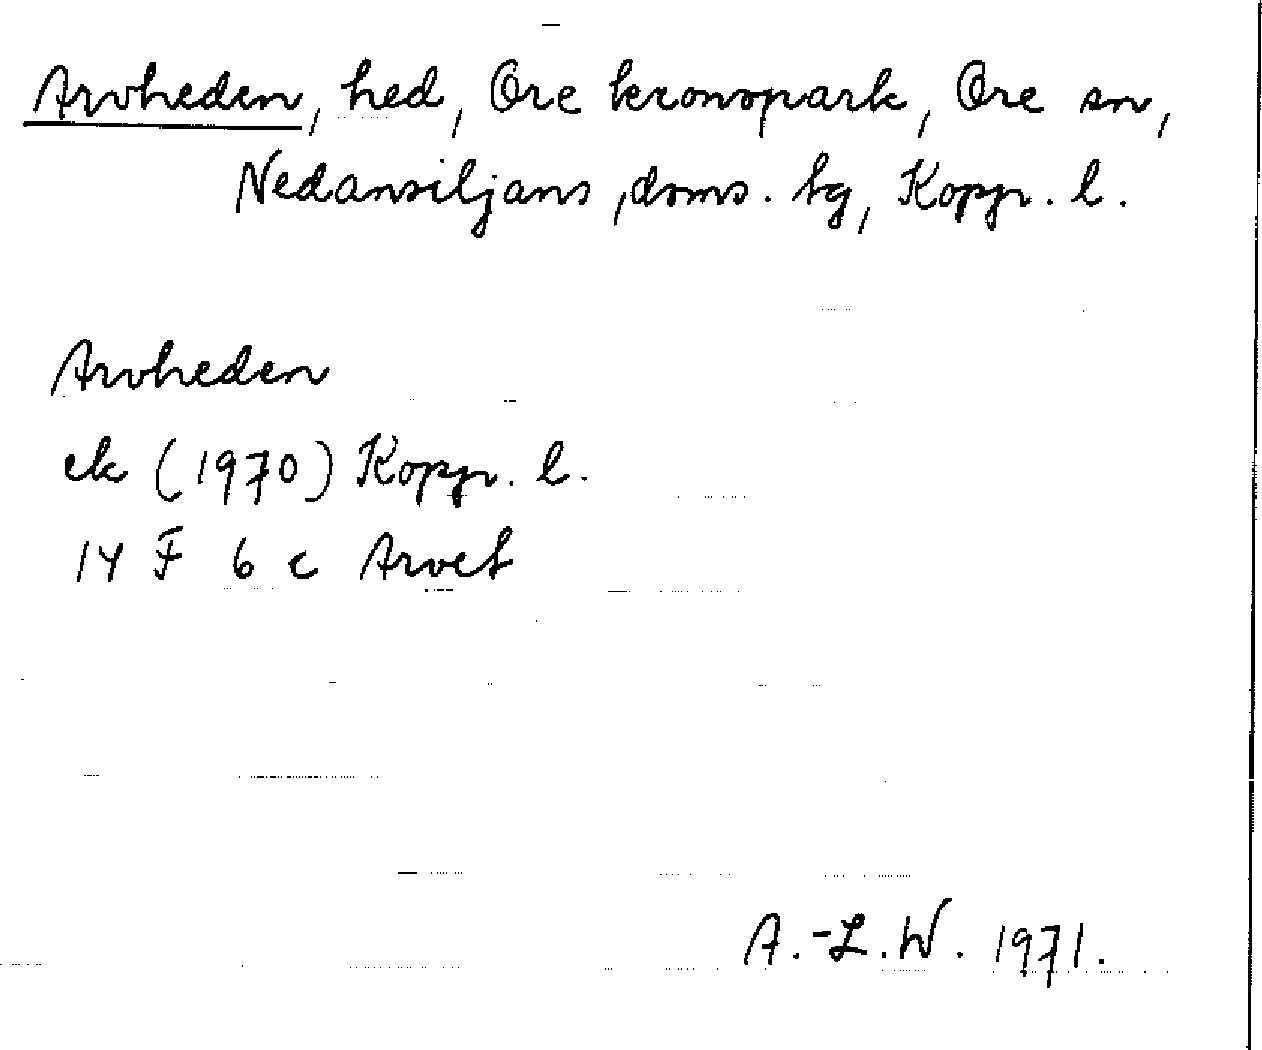 Arvheden, hed, Ore kronopark, Ore sn,
Nedansiljans, doms. tg, Kopp. l.
Arvheden
ek (1970) Kopp. l.
14 F 6 c Arvet
A.-L.W. 1971.